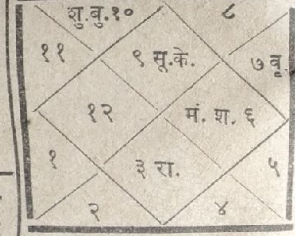 शु.बु.१० ८
११ ९ सू.के. ७ बृ
१२ मं. श. ६
१ ३ रा. ५
२ ४